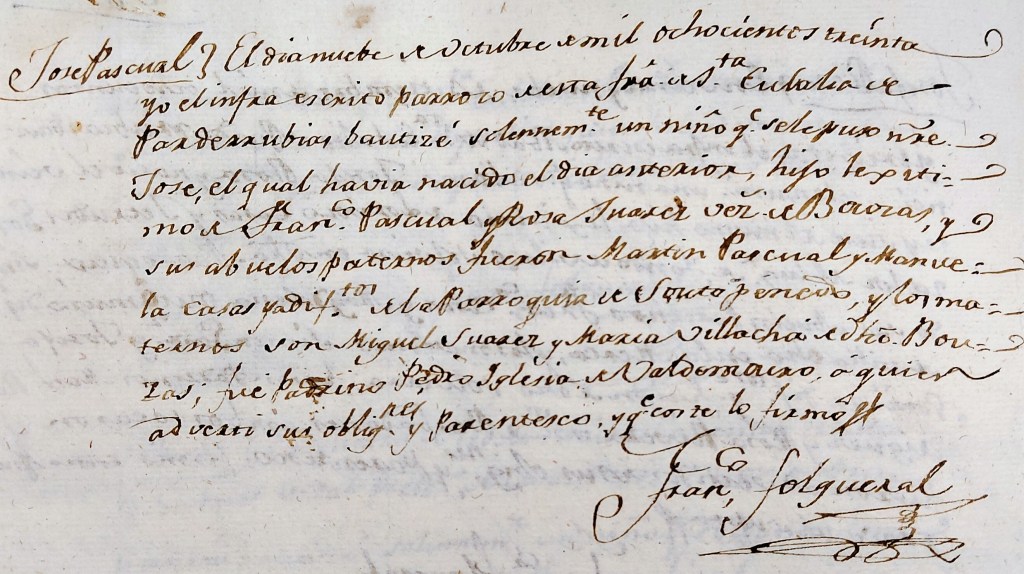 Jose Pascual } El dia nuebe de Octubre de mil ochocientos treinta
yo el infra escrito parroco de esta frã. de Sta. Eulalia de
Parderrubias bautizé solennemte. un niño qe. se le puso nre.
Jose, el qual havia nacido el dia anterior, hijo lexiti-
mo de Franco. Pascual y Rosa Suarez vez. de Bouzas, y
sus abuelos paternos fueron Martin Pascual y Manue-
la Casas ya diftos. de la Parroquia de Souto penedo, y los ma-
ternos son Miguel Suarez y Maria Villachá de dho. Bou-
zas; fue Padrino Pedro Iglesia de Valdemouro, á quien
adverti sus oblignes. y Parentesco, y qe. coste lo firmo
Franco. Folgueral